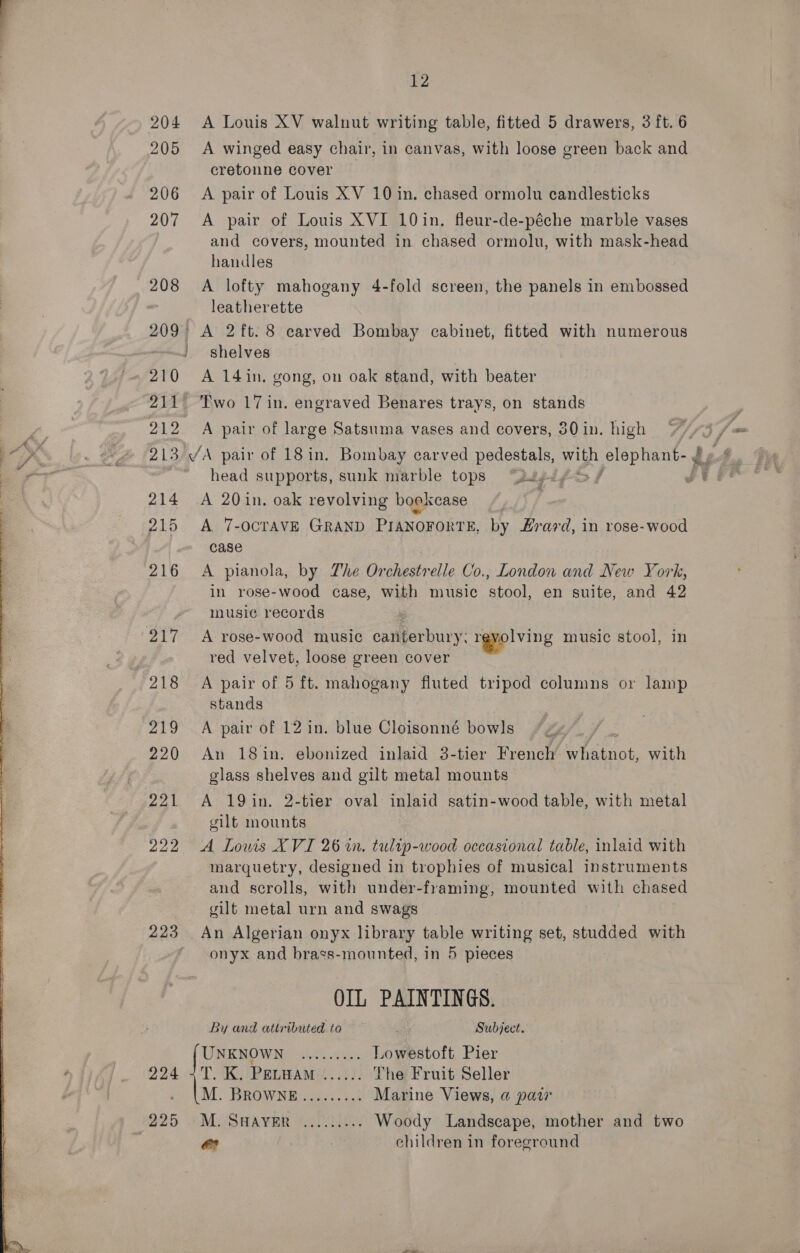 12
204 A Louis XV walnut writing table, fitted 5 drawers, 3 ft. 6
205 A winged easy chair, in canvas, with loose green back and
cretonne cover
206 A pair of Louis XV 10 in. chased ormolu candlesticks
207 A pair of Louis XVI 10in. fleur-de-péche marble vases
and covers, mounted in chased ormolu, with mask-head
handles
208 A lofty mahogany 4-fold screen, the panels in embossed
leatherette
209 A 2 ft. 8 carved Bombay cabinet, fitted with numerous
shelves
210 A 14in. gong, on oak stand, with beater
211 Two 17 in. engraved Benares trays, on stands
212 A pair of large Satsuma vases and covers, 30 in. high
213 A pair of 18 in. Bombay carved pedestals, with elephant-
head supports, sunk marble tops
214 A 20in. oak revolving bookcase
215 A 7-OCTAVE GRAND PIANOFORTE, by Erard, in rose-wood
case
216 A pianola, by The Orchestrelle Co., London and New York,
in rose-wood case, with music stool, en suite, and 42
music records
217 A rose-wood music canterbury; revolving music stool, in
red velvet, loose green cover
218 A pair of 5 ft. mahogany fluted tripod columns or lamp
stands
219 A pair of 12 in. blue Cloisonné bowls
220 An 18in. ebonized inlaid 3-tier French whatnot, with
glass shelves and gilt metal mounts
221 A 19in. 2-tier oval inlaid satin-wood table, with metal
gilt mounts
222 A Louis XVI 26 in. tulip-wood occasional table, inlaid with
marquetry, designed in trophies of musical instruments
and scrolls, with under-framing, mounted with chased
gilt metal urn and swags
223 An Algerian onyx library table writing set, studded with
onyx and brass-mounted, in 5 pieces
OIL PAINTINGS.
By and attributed to Subject.
UNKNOWN ......... Lowestoft Pier
224 T. K. PELHAM ...... The Fruit Seller
M. BROWNE ......... Marine Views, a pair
225 M. SHAYER ......... Woody Landscape, mother and two
children in foreground